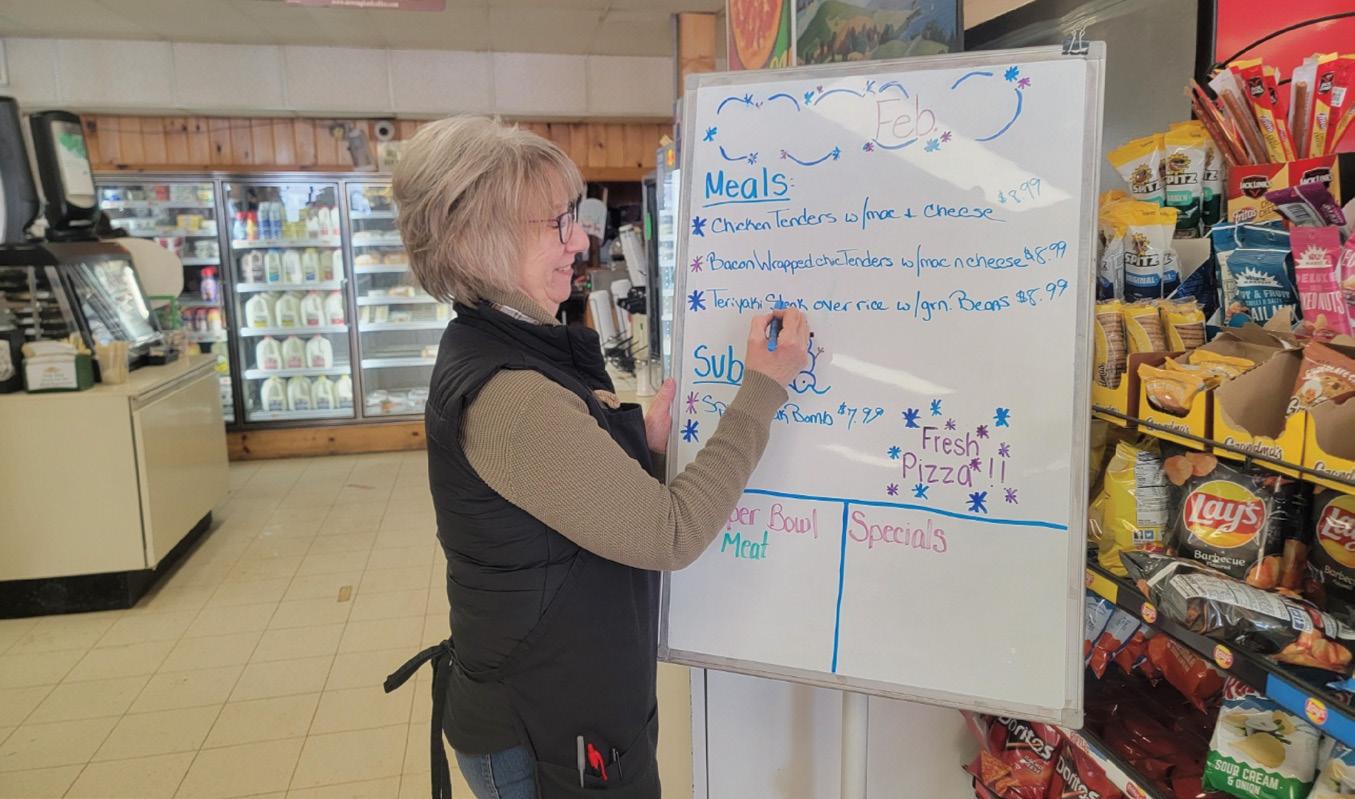 Feb.
Meals:
$8.99
* Chicken Tenders w/mac + cheese
* Bacon Wrapped chic Tenders w/mac n cheese $8.99
* Teriyaki over rice w/grn. Beans $8.99
Sub
* Bomb $7.99
*
Fresh
Pizza !!
Bowl
Meat
Specials
SPITZ
SPITZ
SPITZ
ORIGINAL
JACK LINK'S
Grandma's
Grandma's
Grandma's
Lay's
Barbecue
Lay's
Barbecue
Doritos
Doritos
SOUR CREAM
& ONION